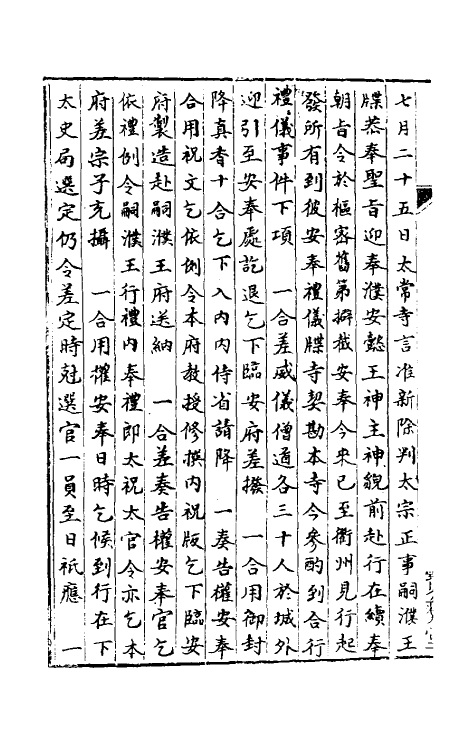 七月二十五日太常寺言准新除判太宗正事嗣濮王
牒恭奉聖旨迎奉濮安懿王神主神貌前赴行在續奉
朝旨令於樞密舊第擗截安奉今來已至衢州見行起
發所有到彼安奉禮儀牒寺契勘本寺今參酌到合行
禮儀事件下項　一合差威儀僧道各三十人於城外
迎引至安奉處訖退乞下臨安府差撥　一合用御封
降真香十合乞下入內內侍省請降　一奏告權安奉
合用祝文乞依例令本府教授修撰內祝版乞下臨安
府製造赴嗣濮王府送納　一合差奏告權安奉官乞
依禮例令嗣濮王行禮內奉禮郎太祝太官令亦乞本
府差宗子充攝　一合用權安奉日時乞候到行在下
太史局選定仍令差定時尅選官一員至日祇應　一